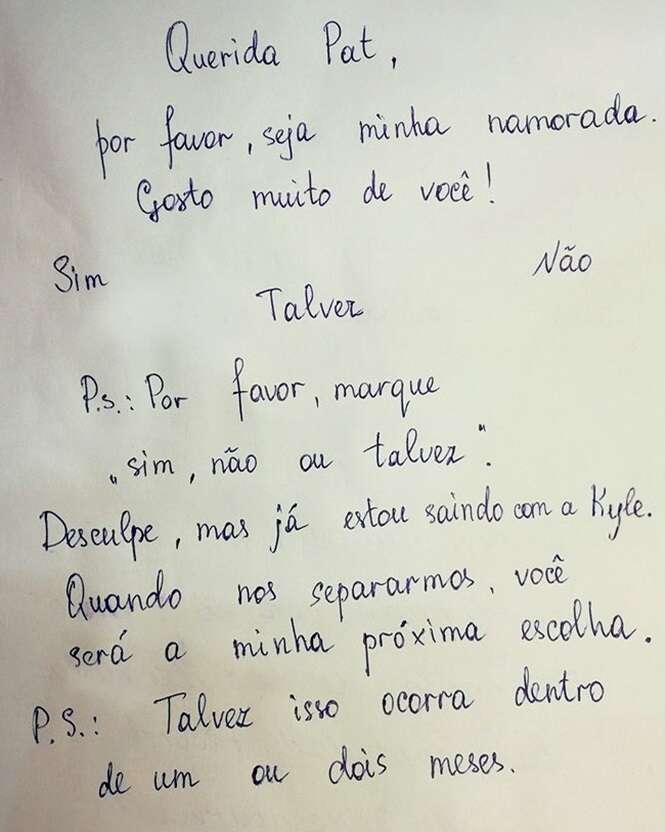 Querida Pat,
por favor, seja minha namorada.
Gosto muito de você!
Sim Não
Talvez
P.s.: Por favor, marque
„sim, não ou talvez".
Desculpe, mas já estou saindo com a Kyle.
Quando nos separarmos, você
será a minha próxima escolha.
P.S.: Talvez isso ocorra dentro
de um ou dois meses.